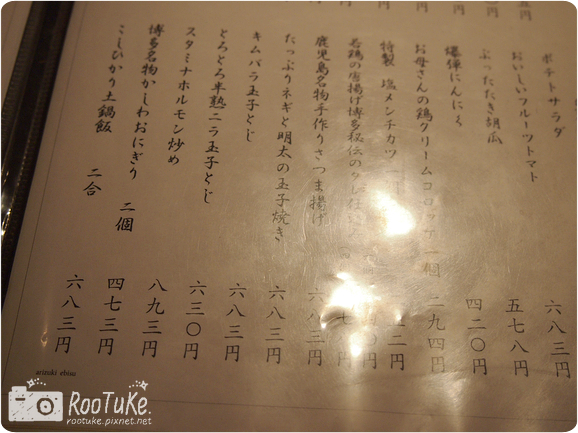 ポテトサラダ 六八三円
おいしいフルーツトマト 五七八円
ぶったたき胡瓜 四二〇円
爆弾にんにく 二九四円
お母さんの鶏クリームコロッケ 一個 二円
特製 塩メンチカツ 〇円
若鶏の唐揚げ博多秘伝のタレ仕込み 七円
鹿児島名物手作りさつま揚げ 六八三円
たっぷりネギと明太の玉子焼き 六八三円
キムバラ玉子とじ 六八三円
とろとろ半熟ニラ玉子とじ 六三〇円
スタミナホルモン炒め 八九三円
博多名物かしわおにぎり 二個 四七三円
こしひかり土鍋飯 二合 六八三円
arizuki ebisu
RooTuKe.
rootuke.pixnet.net